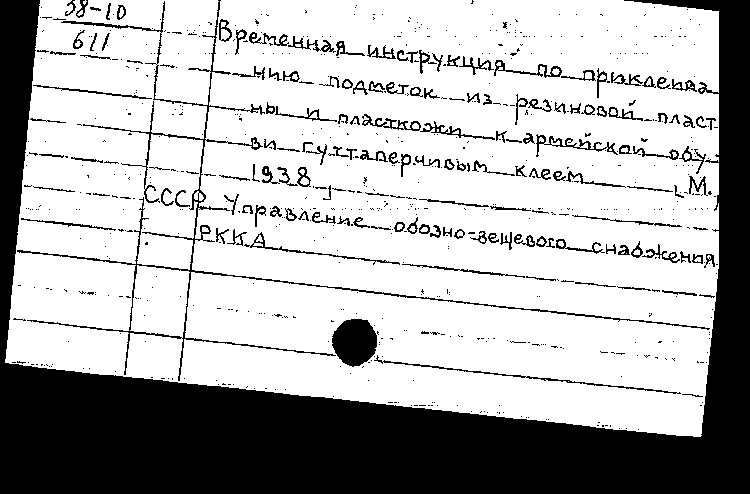 38-10
611
Временная инструкция по приклеива
нию подметок из резиновой пласт
ны и пласткожи к армейской обу-
ви гуттаперчивым клеем [М.,
1938]
СССР Управление обозно-вещевого снабжения
РККА